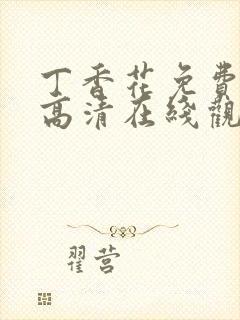 丁香花免费
高清在线觀
翟营